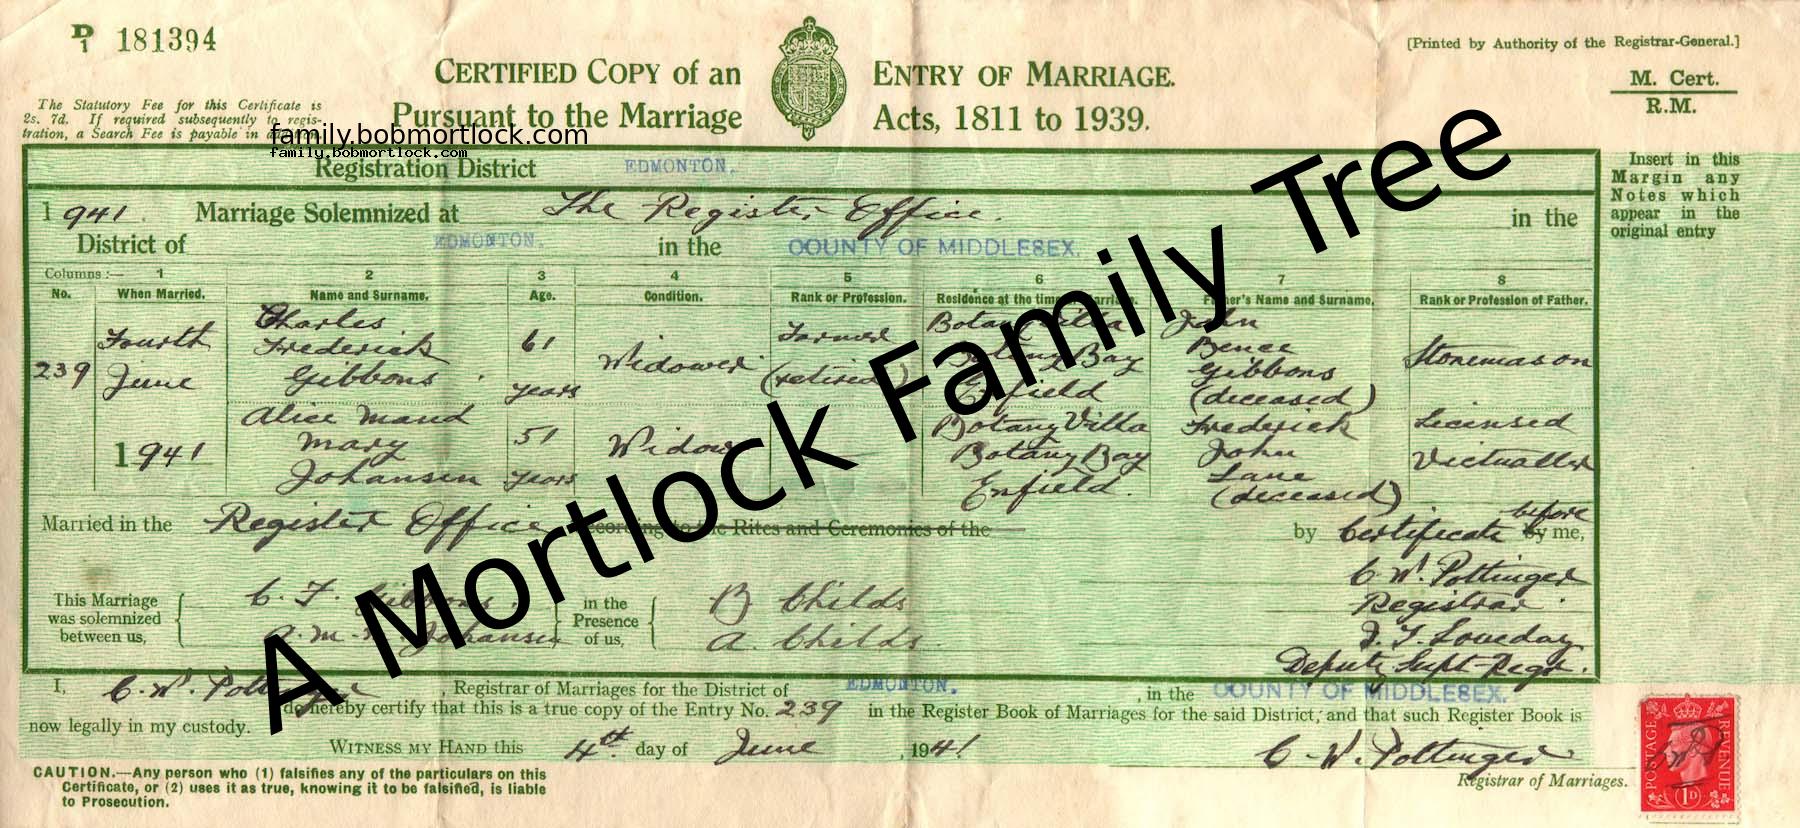 D 1 181394
[Printed by Authority of the Registrar-General.]
CERTIFIED COPY of an ENTRY OF MARRIAGE.
Pursuant to the Marriage Acts, 1811 to 1939.
M. Cert.
R.M.
The Statutory Fee for this Certificate is
2s. 7d. If required subsequently to regis-
tration, a Search Fee is payable in
family.bobmortlock.com
family.bobmortlock.com
Registration District EDMONTON.
Insert in this
Margin any
Notes which
appear in the
original entry
1941. Marriage Solemnized at The Register Office. in the
District of EDMONTON. in the COUNTY OF MIDDLESEX.
Columns :— 1 2 3 4 5 6 7 8
No. When Married. Name and Surname. Age. Condition. Rank or Profession. Residence at the time of Marriage. Father's Name and Surname. Rank or Profession of Father.
239
Fourth
June
1941
Charles
Frederick
Gibbons
61
years
Widower
Farmer
(retired)
Botany Villa
Botany Bay
Enfield
John
Bence
Gibbons
(deceased)
Stonemason
Alice Maud
Mary
Johansen
51
years
Widow
Botany Villa
Botany Bay
Enfield.
Frederick
John
Lane
(deceased)
Licensed
Victualler
Married in the Register Office according to the Rites and Ceremonies of the by Certificate before by me,
C. W. Pottinger
Registrar.
This Marriage
was solemnized
between us,
C. F. Gibbons.
A. M. M. Johansen
in the
Presence
of us,
B Childs
A. Childs.
J. T. Loveday
Deputy Supt-Regr.
I, C. W. Pottinger, Registrar of Marriages for the District of EDMONTON. , in the COUNTY OF MIDDLESEX.
do hereby certify that this is a true copy of the Entry No. 239 in the Register Book of Marriages for the said District, and that such Register Book is
now legally in my custody.
WITNESS MY HAND this 4th day of June , 1941
C. W. Pottinger
Registrar of Marriages.
CAUTION.—Any person who (1) falsifies any of the particulars on this
Certificate, or (2) uses it as true, knowing it to be falsified, is liable
to Prosecution.
POSTAGE REVENUE
1D
A Mortlock Family Tree